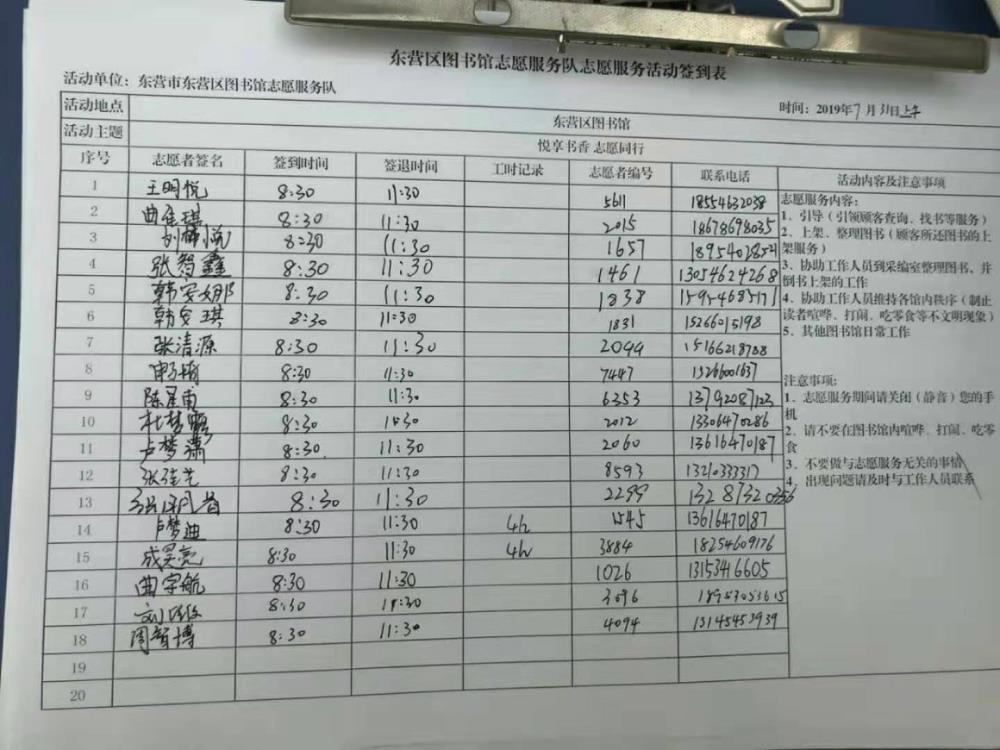 东营区图书馆志愿服务队志愿服务活动签到表
活动单位：东营市东营区图书馆志愿服务队
时间：2019年7月31日上午
活动地点 东营区图书馆
活动主题 悦享书香 志愿同行
序号 志愿者签名 签到时间 签退时间 工时记录 志愿者编号 联系电话 活动内容及注意事项
1 王明悦 8:30 11:30 5611 18554632038
2 曲佳琪 8:30 11:30 2015 18678698035
3 8:30 11:30 1657 18954038521
4 张智鑫 8:30 11:30 1461 13054624268
5 韩安娜 8:30 11:30 1838 15954685171
6 韩安琪 8:30 11:30 1831 15266015198
7 张清源 8:30 11:30 2044 15166218788
8 8:30 11:30 7447 15266001637
9 陈星甫 8:30 11:30 6353 13792087123
10 杜梦 8:30 11:30 2012 13306470286
11 卢梦潇 8:30 11:30 2060 13616470187
12 张佳艺 8:30 11:30 8593 1321033317
13 8:30 11:30 2299 13287320356
14 卢梦迪 8:30 11:30 4h 1545 13616470187
15 成昊亮 8:30 11:30 4h 3884 18254609176
16 曲宇航 8:30 11:30 1026 13153416605
17 8:30 11:30 3096 18953053615
18 周智博 8:30 11:30 4094 13145453939
19
20
志愿服务内容：
1、引导（引领顾客查询、找书等服务）
2、上架、整理图书（顾客所还图书的上
架服务）
3、协助工作人员到采编室整理图书，并
倒书上架的工作
4、协助工作人员维持各馆内秩序（制止
读者喧哗、打闹、吃零食等不文明现象）
5、其他图书馆日常工作
注意事项：
1、志愿服务期间请关闭（静音）您的手
机
2、请不要在图书馆内喧哗、打闹、吃零
食
3、不要做与志愿服务无关的事情
4、出现问题请及时与工作人员联系